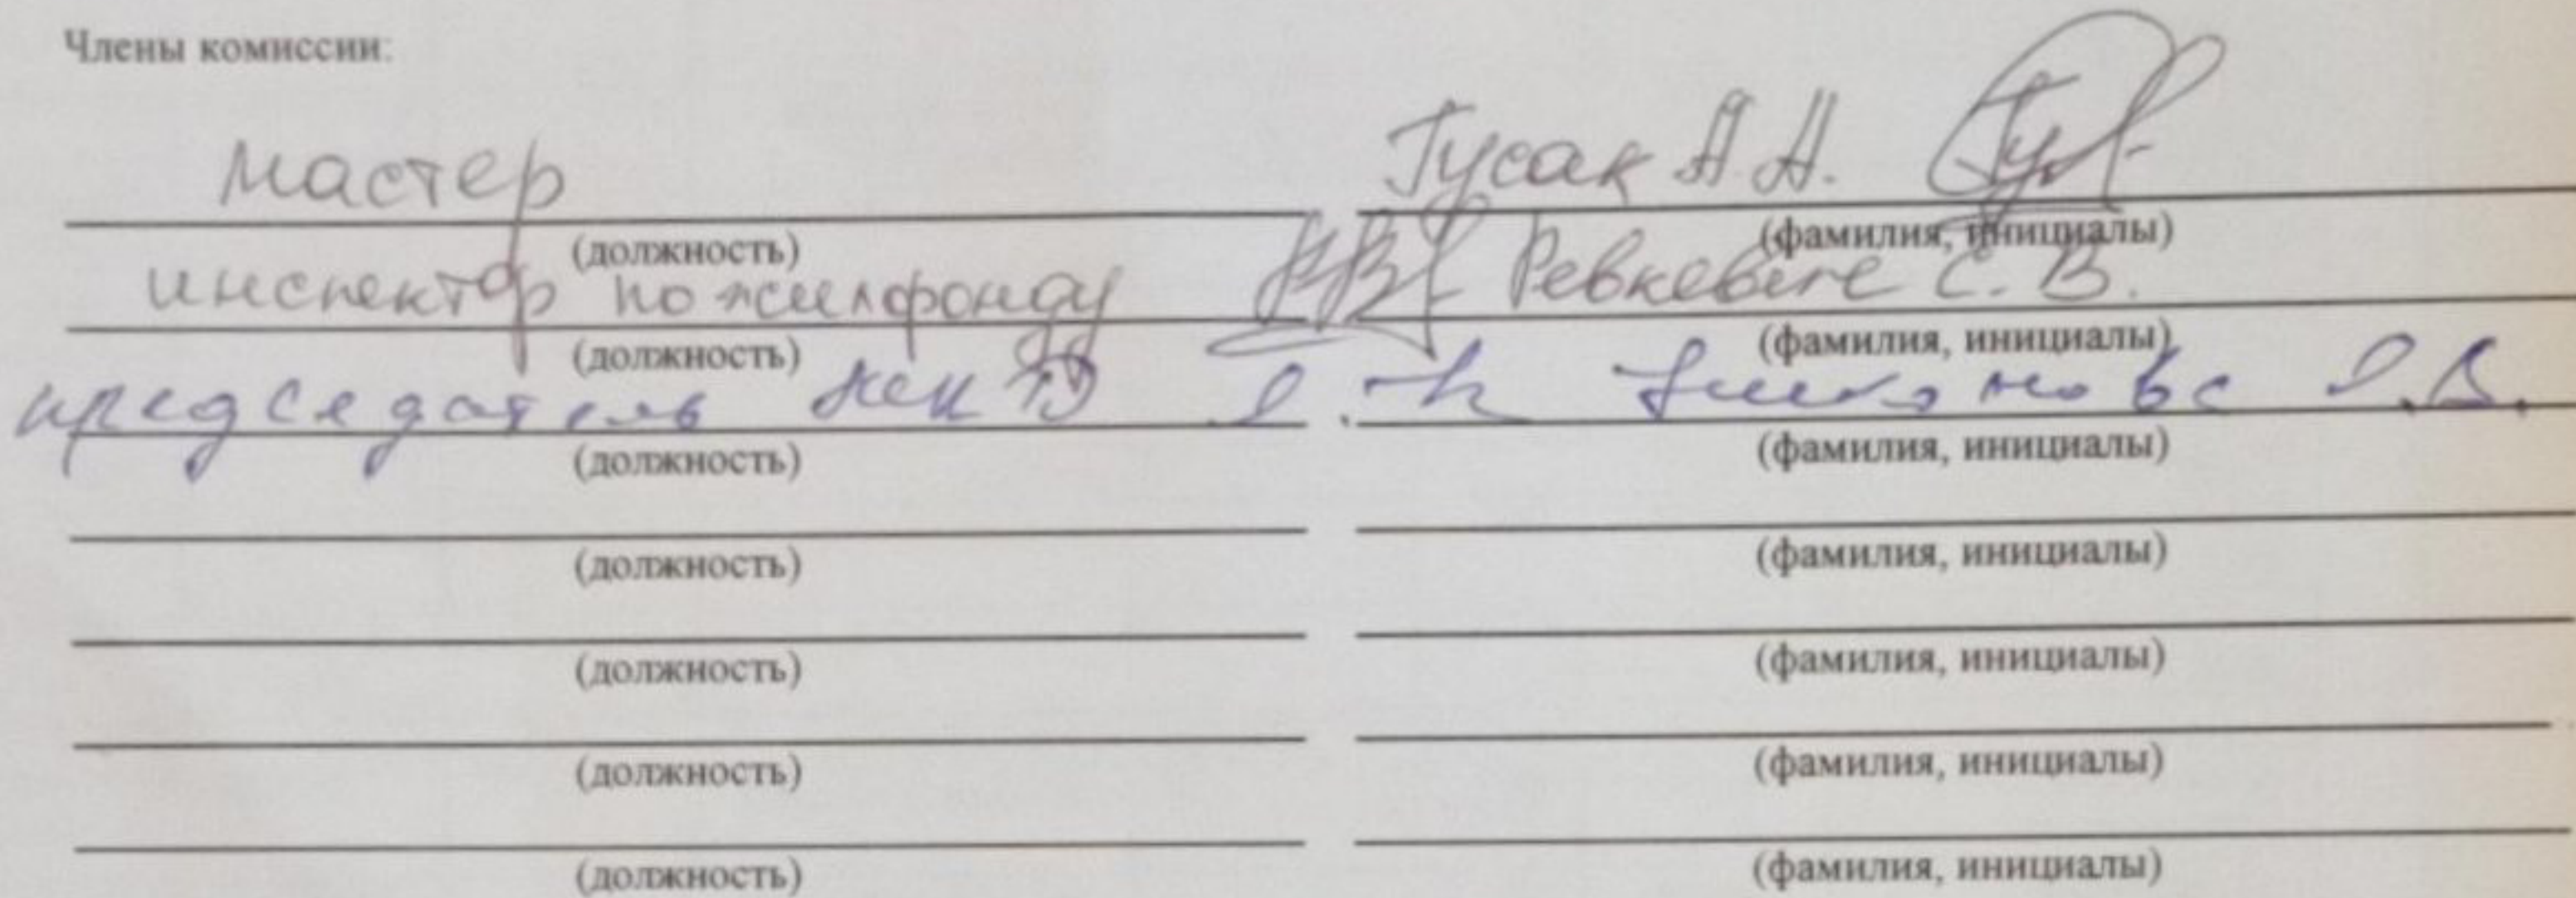 Члены комиссии:
мастер Гусак А.А.
(должность) (фамилия, инициалы)
инспектор по жилфонду Ревкевич С.В.
(должность) (фамилия, инициалы)
председатель
(должность) (фамилия, инициалы)
(должность) (фамилия, инициалы)
(должность) (фамилия, инициалы)
(должность) (фамилия, инициалы)
(должность) (фамилия, инициалы)